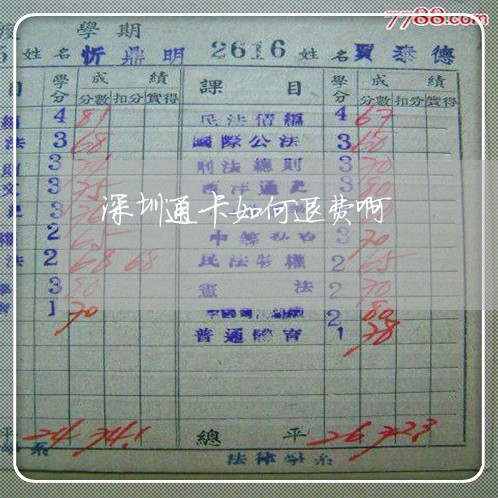 7788.com
學期
姓名 忻鼎明 2616 姓名 賈泰德
目 學分 成績 課目 學分 成績
分數 扣分 實得 分數 扣分 實得
4 81 民法債編 4 67
法 3 68 國際公法 3 60
3 刑法總則 3 70
3 75 西洋通史 3 80
3
深圳通卡如何退费啊
2 65 3 70
法 2 68 68 民法物權 2 65
3 80 憲法 2 70
1 70 2 80
普通體育 1 78
平 24 74.1 總平 26 72.3
系 法律學系